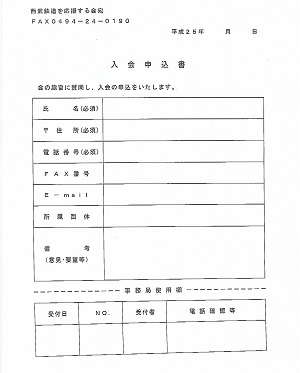 西武鉄道を応援する会宛
FAX0494-24-0190
平成25年　　月　　日
入会申込書
会の趣旨に賛同し、入会の申込をいたします。
氏　　名(必須)
〒住　所(必須)
電話番号(必須)
FAX番号
E－mail
所属団体
備　　考
(意見・要望等)
事務局使用欄
受付日　NO.　受付者　電話確認等